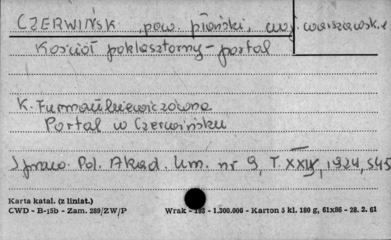 CZERWIŃSK, pow. płoński, woj. warszawskie
Kościół poklasztorny - portal
K. Furmankiewiczówna
Portal w Czerwińsku
Spraw. Pol. Akad. Um. nr 9, T. XXIX, 1924, S45
Karta katal. (z liniat.)
CWD - B-j5b - Zam. 289/ZW/P Wrak - 198 - 1.300.000 - Karton 5 kl. 180 g, 61x86 - 28. 2. 61